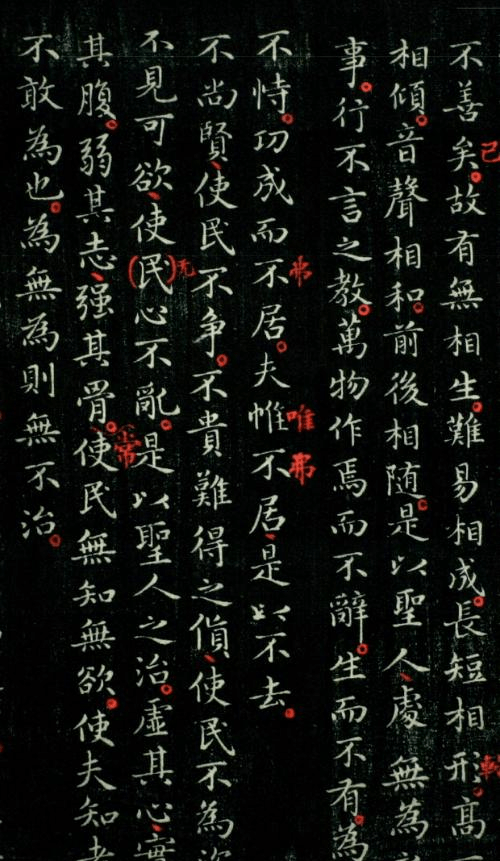 不善矣。故有無相生。難易相成。長短相形。高
已
相傾。音聲相和。前後相随。是以聖人、處無為
事。行不言之教。萬物作焉而不辭。生而不有。為
不恃。功成而不居。夫惟不居、是以不去。
弗
唯
弗
不尚賢、使民不争。不貴難得之貨、使民不為
不見可欲、使(民)心不亂。是以聖人之治。虚其心、實
无
其腹。弱其志、强其骨。使民無知無欲。使夫知者
常
不敢為也。為無為則無不治。